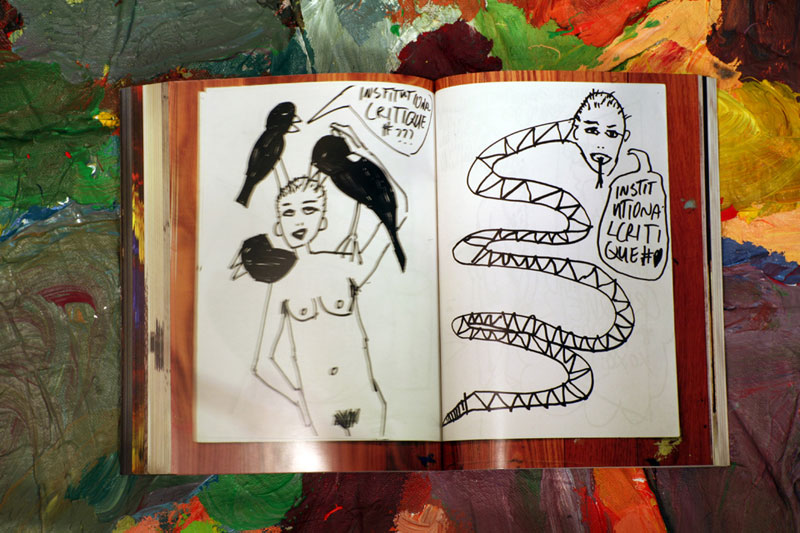 INSTITUTIONAL
CRITIQUE
#???
INSTIT
UTIONA
LCRITI
QUE#